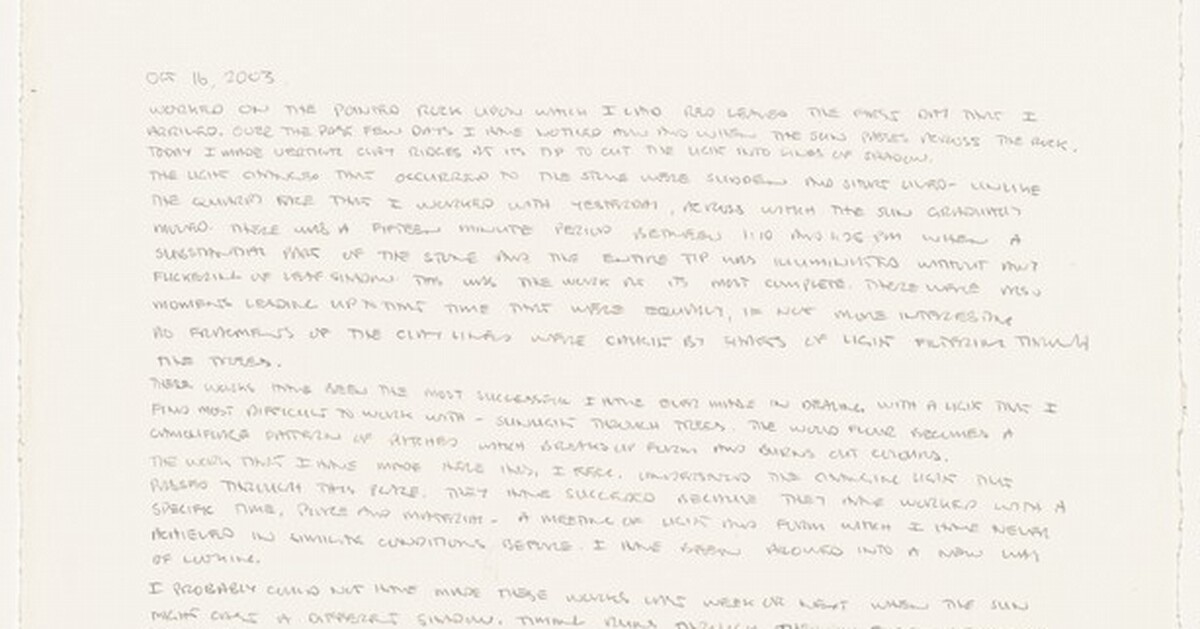 OCT 16, 2003.
WORKED ON THE POINTED ROCK UPON WHICH I LAID RED LEAVES THE FIRST DAY THAT I
ARRIVED. OVER THE PAST FEW DAYS I HAVE NOTICED HOW AND WHEN THE SUN PASSES ACROSS THE ROCK.
TODAY I MADE VERTICAL CLAY RIDGES AT ITS TIP TO CUT THE LIGHT INTO LINES OF SHADOW.
THE LIGHT CHANGES THAT OCCURRED TO THE STONE WERE SUDDEN AND SHORT LIVED - UNLIKE
THE QUARRIED FACE THAT I WORKED WITH YESTERDAY, ACROSS WHICH THE SUN GRADUALLY
MOVED. THERE WAS A FIFTEEN MINUTE PERIOD BETWEEN 1:10 AND 1:25 PM WHEN A
SUBSTANTIAL PART OF THE STONE AND THE ENTIRE TIP WAS ILLUMINATED WITHOUT ANY
FLICKERING OF LEAF SHADOW. THIS WAS THE WORK AT ITS MOST COMPLETE. THERE WERE ALSO
MOMENTS LEADING UP TO THAT TIME THAT WERE EQUALLY, IF NOT MORE INTERESTING
AS FRAGMENTS OF THE CLAY LINES WERE CAUGHT BY SHAFTS OF LIGHT FILTERING THROUGH
THE TREES.
THESE WORKS HAVE BEEN THE MOST SUCCESSFUL I HAVE EVER MADE IN DEALING WITH A LIGHT THAT I
FIND MOST DIFFICULT TO WORK WITH - SUNLIGHT THROUGH TREES. THE WOOD FLOOR BECOMES A
CAMOUFLAGE PATTERN OF PATCHES WHICH BREAKS UP FORM AND BURNS OUT COLOURS.
THE WORK THAT I HAVE MADE HERE HAS, I FEEL, UNDERSTOOD THE CHANGING LIGHT THAT
PASSED THROUGH THIS PLACE. THEY HAVE SUCCEEDED BECAUSE THEY HAVE WORKED WITH A
SPECIFIC TIME, PLACE AND MATERIAL - A MEETING OF LIGHT AND FORM WHICH I HAVE NEVER
ACHIEVED IN SIMILAR CONDITIONS BEFORE. I HAVE BEEN ALLOWED INTO A NEW WAY
OF LOOKING.
I PROBABLY COULD NOT HAVE MADE THESE WORKS LAST WEEK OR NEXT WHEN THE SUN
MIGHT CAST A DIFFERENT SHADOW. TIMING RUNS THROUGH